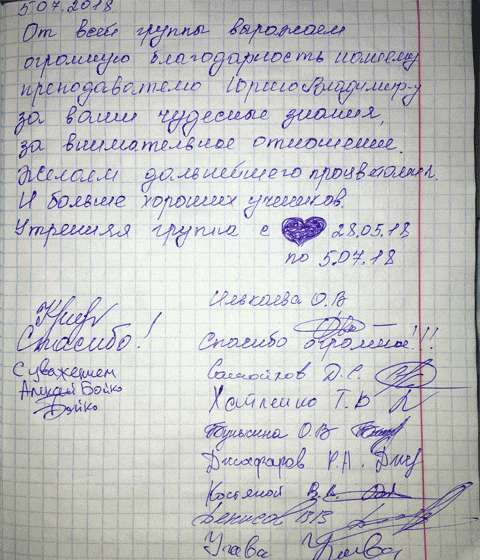 5.07.2018
От всей группы выражаем
огромную благодарность нашему
преподавателю Юрию Владимир-у
за ваши чудесные знания,
за внимательное отношение.
Желаем дальнейшего процветания.
И больше хороших учеников.
Утренняя группа с 28.05.18
по 5.07.18
О.В
Спасибо!
Спасибо огромное!!!
С уважением
Алексей Бойко
Бойко
Самойлов Д.С.
Т.В
О.В
Джафаров Р.А.
Костяной В.А.
Денисов В.В